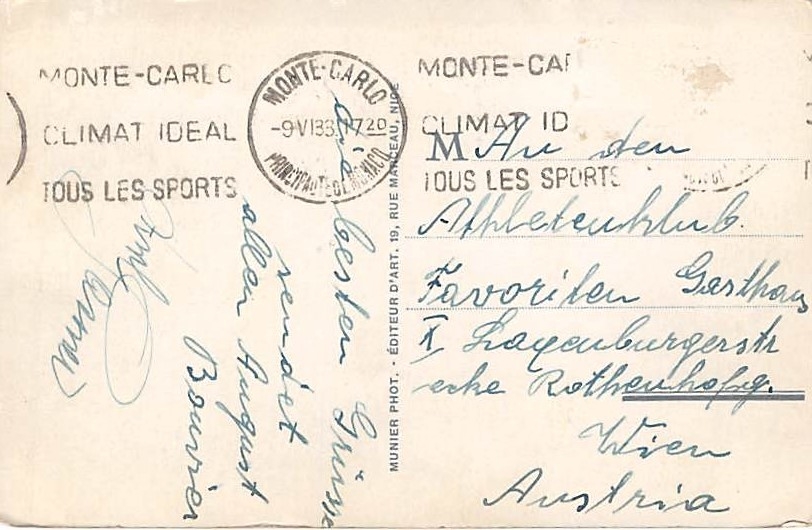 MONTE-CARLO
CLIMAT IDEAL
TOUS LES SPORTS
MONTE-CARLO
-9 VI 33 1720
PRINCIPAUTE DE MONACO
MONTE-CAR
CLIMAT ID
TOUS LES SPORTS
die besten Grüsse
sendet
allen August
Bouvier
MUNIER PHOT. - ÉDITEUR D'ART. 19, RUE MARCEAU, NICE
M An den
Athletenklub.
Favoriten Gasthaus
X Laxenburgerstr
ecke Rothenhofg.
Wien
Austria